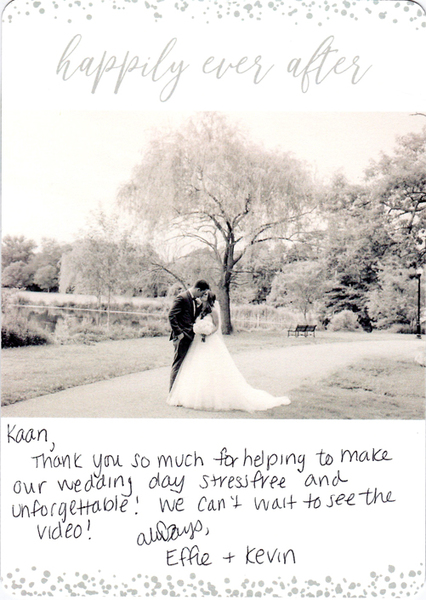 happily ever after
Kaan,
Thank you so much for helping to make
our wedding day stressfree and
unforgettable! We can't wait to see the
video!
always,
Effie + Kevin